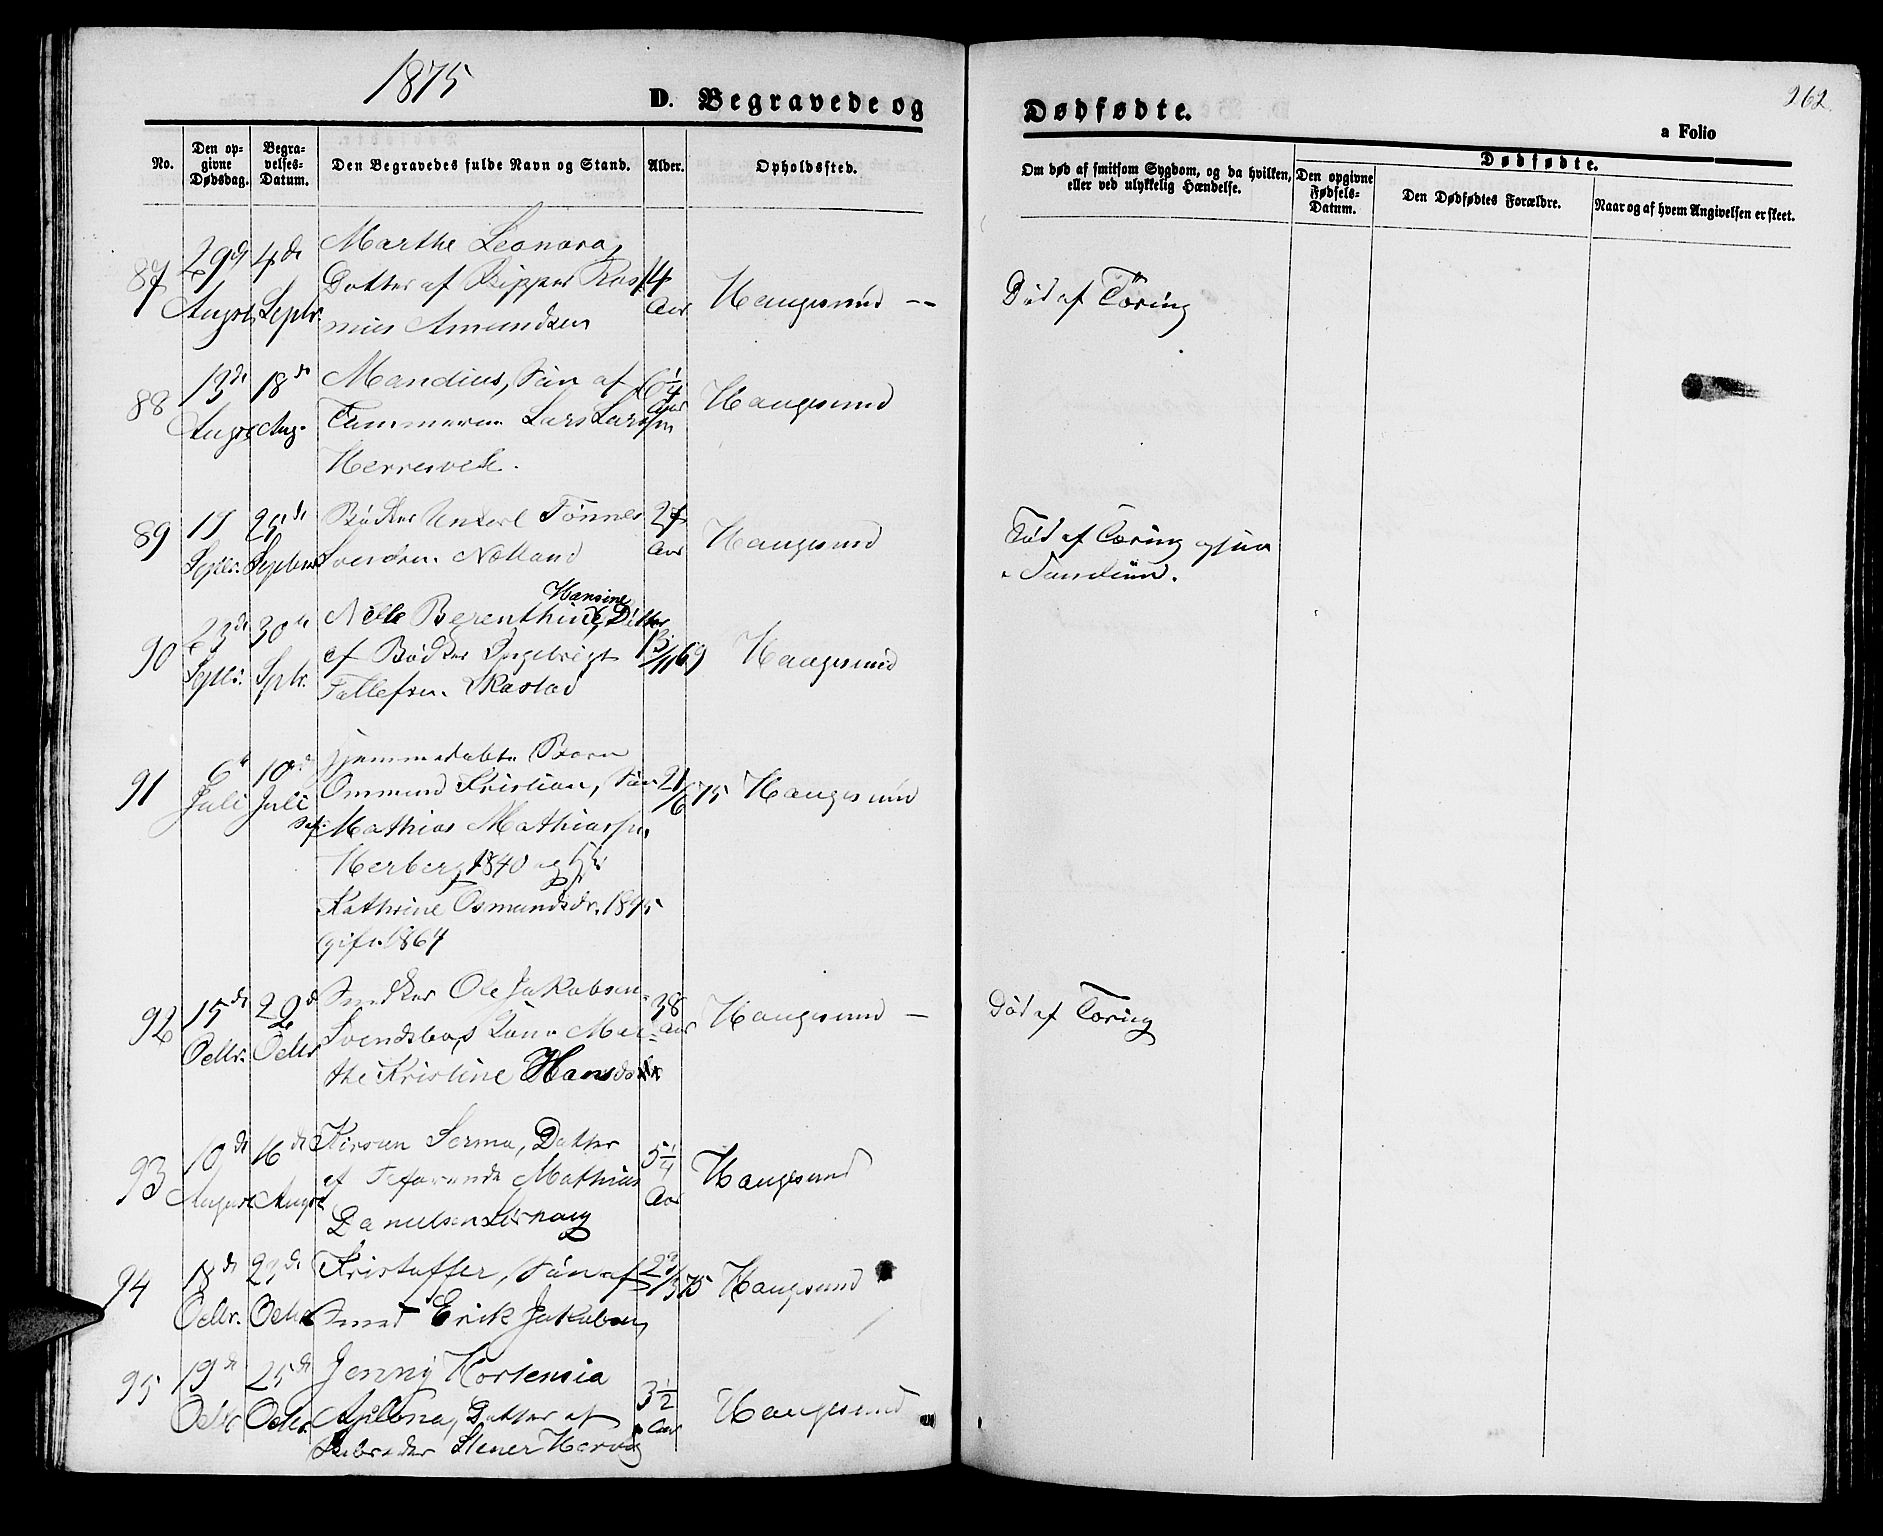 1875
D. Begravede og
Dødfødte.
262.
a Folio
No.
Den op-
givne
Dødsdag.
Begra-
velses-
Datum.
Den Begravedes fulde Navn og Stand.
Alder.
Opholdssted.
Om død af smitsom Sygdom, og da hvilken,
eller ved ulykkelig Hændelse.
Dødfødte.
Den opgivne
Fødsels-
Datum.
Den Dødfødtes Forældre.
Naar og af hvem Angivelsen er skeet.
87 29de August 4de Septbr. Marthe Leonora,
Datter af Skipper Ras-
mus Amundsen
14 Aar
Haugesund --
Død af Tæring
88 13de August 18de Aug. Mandius, Søn af
Tømmerm. Lars Larsen
6¼ Aar
Haugesund
89 19 Septbr. 25de Septbr Bødker Enkel Tønnes
Svendsen Nølland
27 Aar
Haugesund
Død af Tæring
90 23de Septbr. 30te Sptr. Hansine
Nille Berenthine, Datter
af Bødker Ingebrigt
Tollefsen Skastad
13/11 69
Haugesund
91 6te Juli 10de Juli Hjemmedøbte Barn
Ommund Kristian, Søn
af Mathias Mathiassen
Herberg 1840 og
Kathrine Osmundsdr. 1845
gift 1864
21/6 75
Haugesund
92 15de Octbr. 22de Octbr Snedker Ole Jakobsen
Svendsbøs Kone Mar-
the Kristine Hansdatter
38 Aar
Haugesund —
Død af Tæring
93 10de August 16de August Datter
af Søfarende Mathias
Danielsen
5¼ Aar
Haugesund
94 18de Octbr. 23de Octbr Kristoffer, Søn af
Smed Erik Jakobsen
29/3 75
Haugesund
95 19de Octbr 25de Octbr. Jenny Hortensia
Apolona, Datter af
Stener
3½ Aar
Haugesund